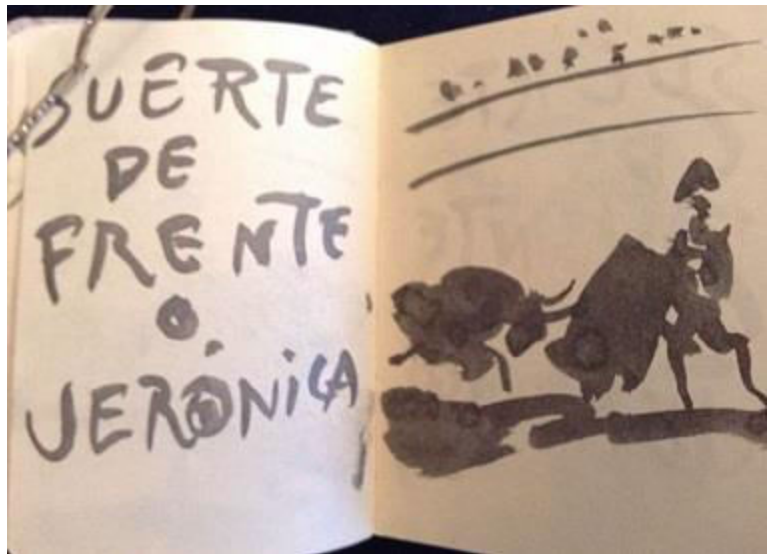 SUERTE
DE
FRENTE
O
VERÓNICA